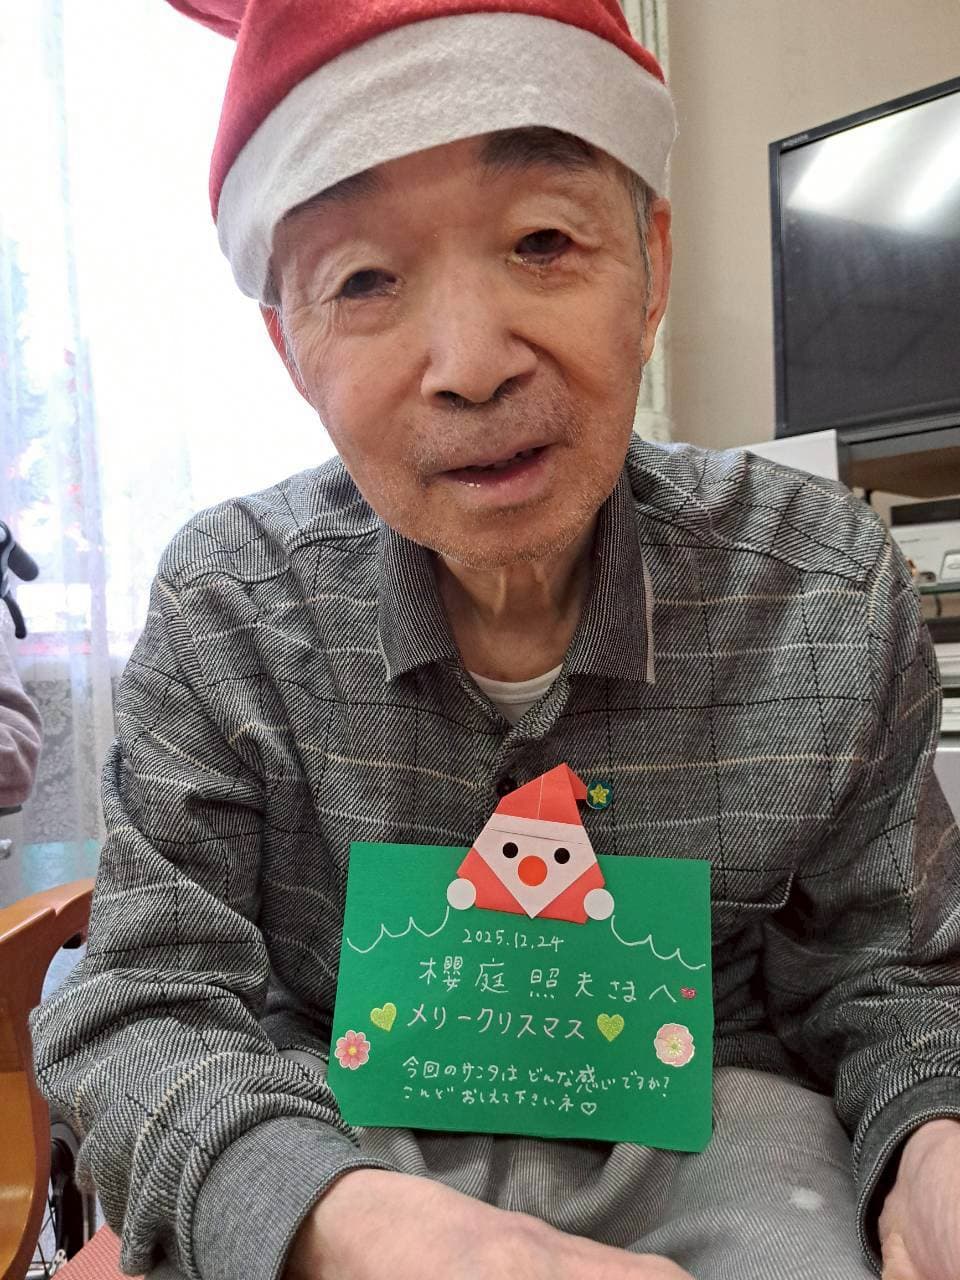 2025.12.24
櫻庭 照夫さまへ
メリークリスマス
今回のサンタは どんな感じですか?
こんど おしえて下さいネ♡